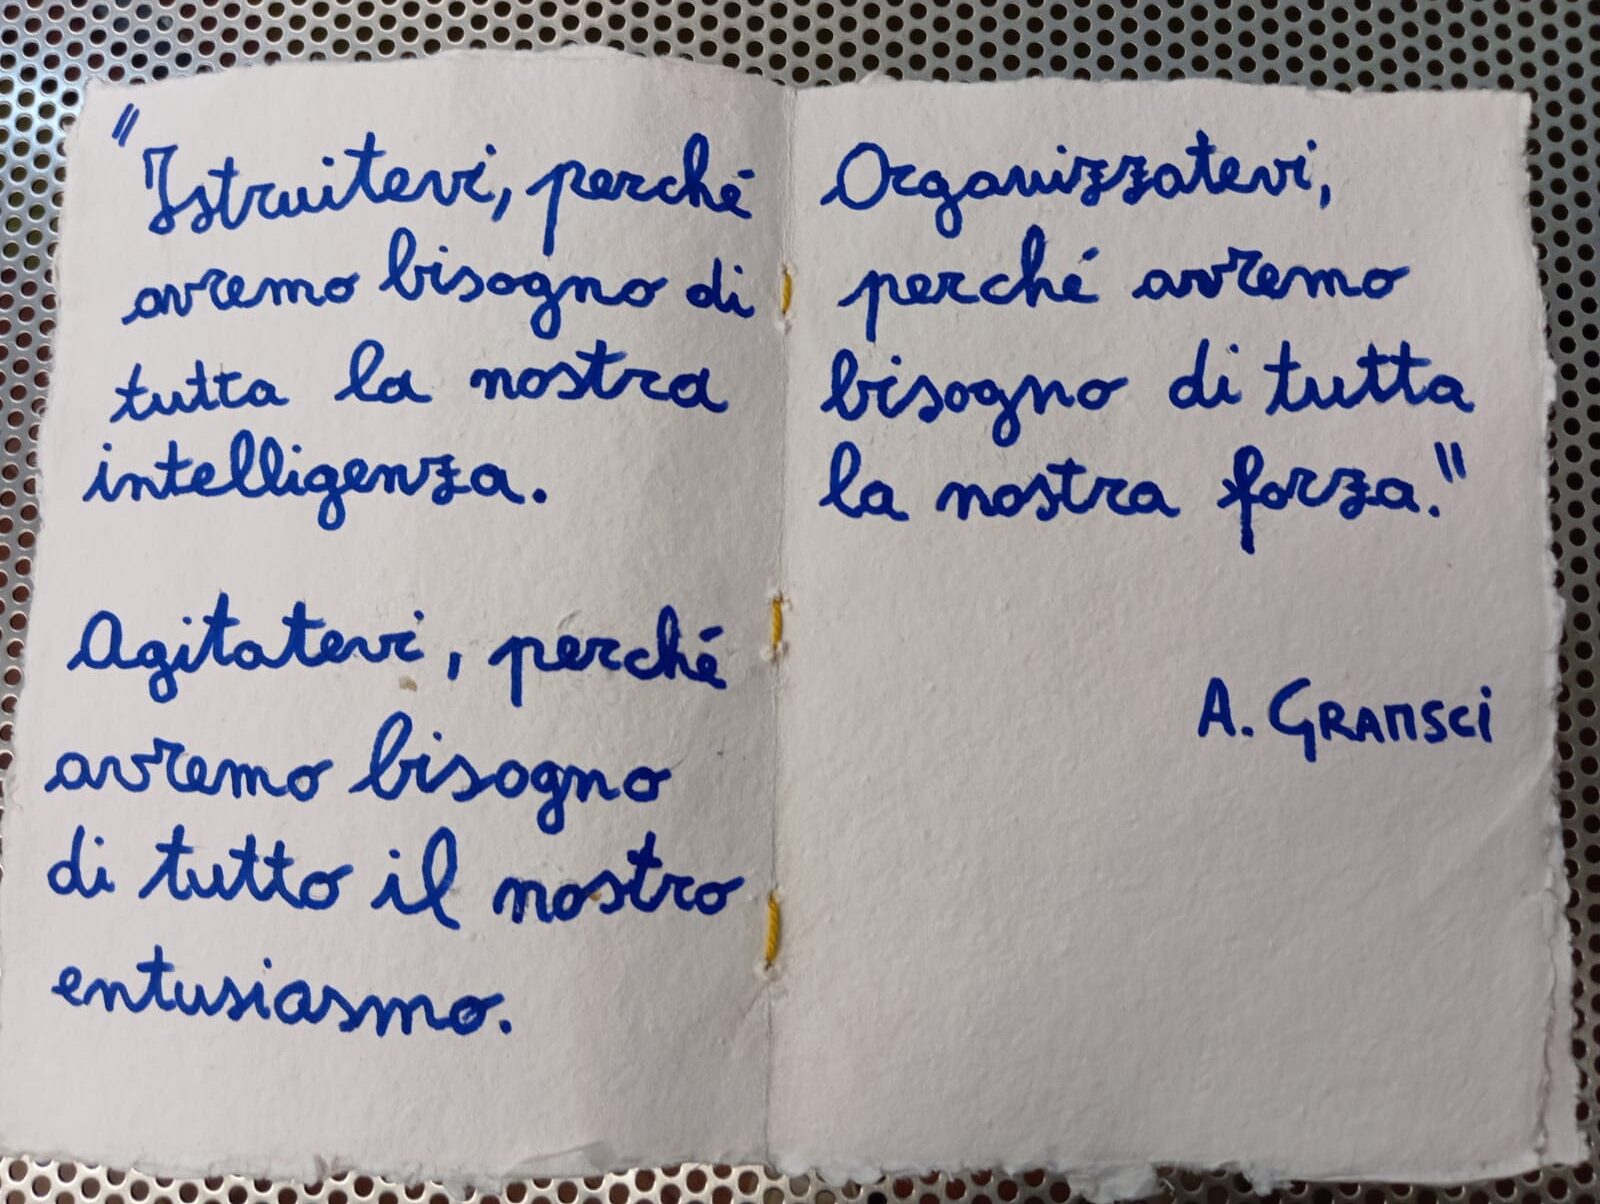 "Istruitevi, perché
avremo bisogno di
tutta la nostra
intelligenza.
Agitatevi, perché
avremo bisogno
di tutto il nostro
entusiasmo.
Organizzatevi,
perché avremo
bisogno di tutta
la nostra forza."
A. GRAMSCi